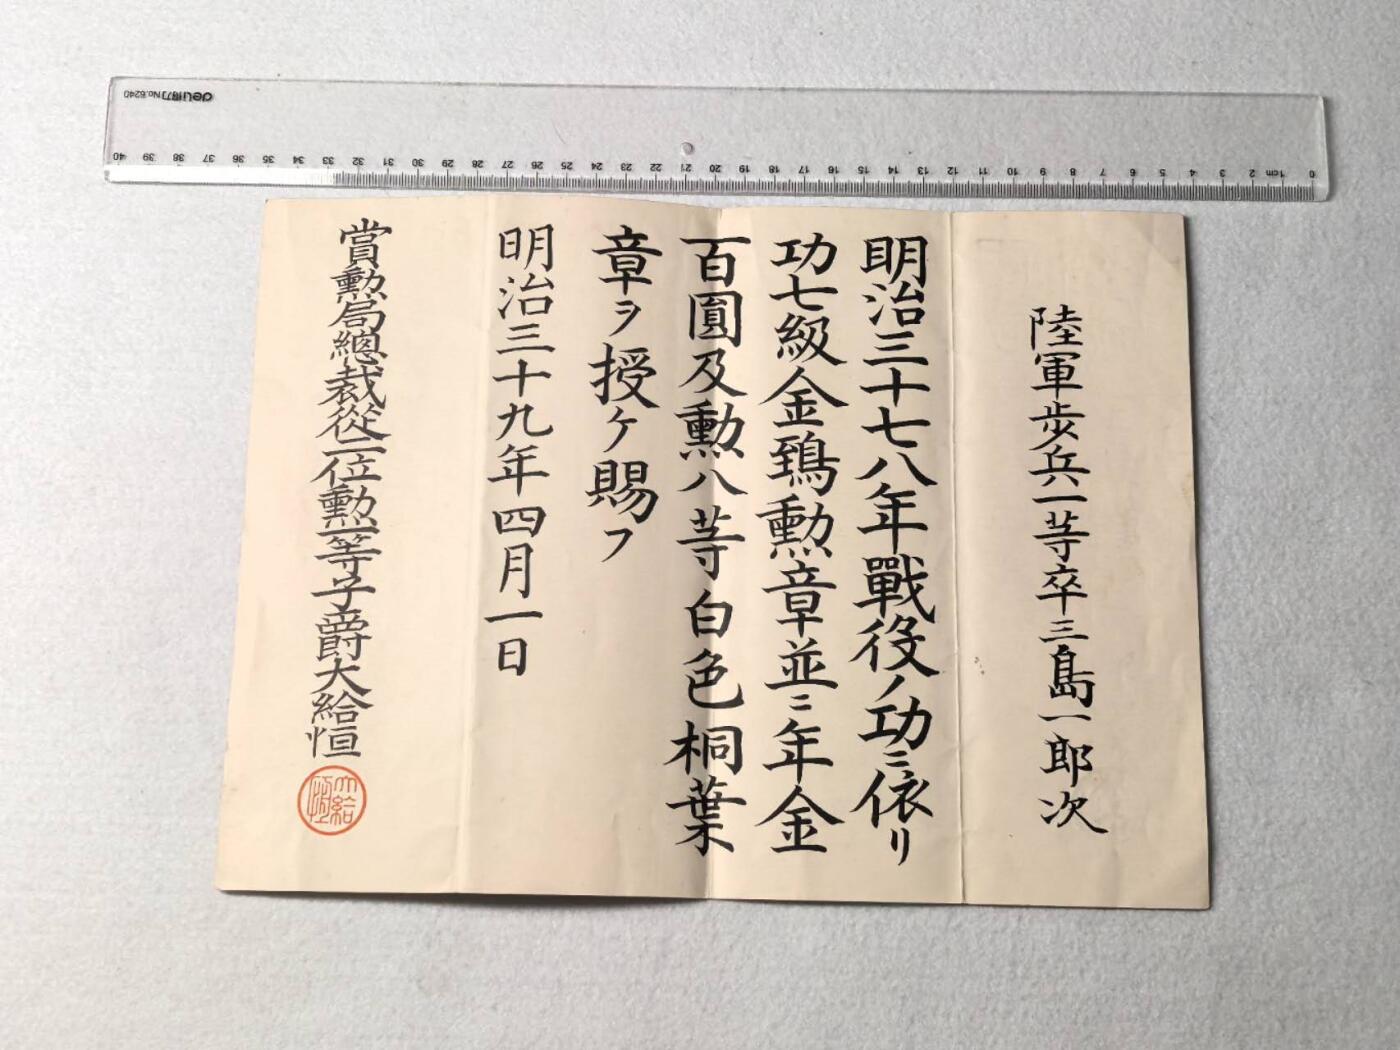 陸軍歩兵一等卒三島一郎次
明治三十七八年戰役ノ功ニ依リ
功七級金鵄勲章並ニ年金
百圓及勲八等白色桐葉
章ヲ授ケ賜フ
明治三十九年四月一日
賞勲局總裁從二位勲一等子爵大給恒
大給恒
deli得力 No.6240
0 1cm 2 3 4 5 6 7 8 9 10 11 12 13 14 15 16 17 18 19 20 21 22 23 24 25 26 27 28 29 30 31 32 33 34 35 36 37 38 39 40